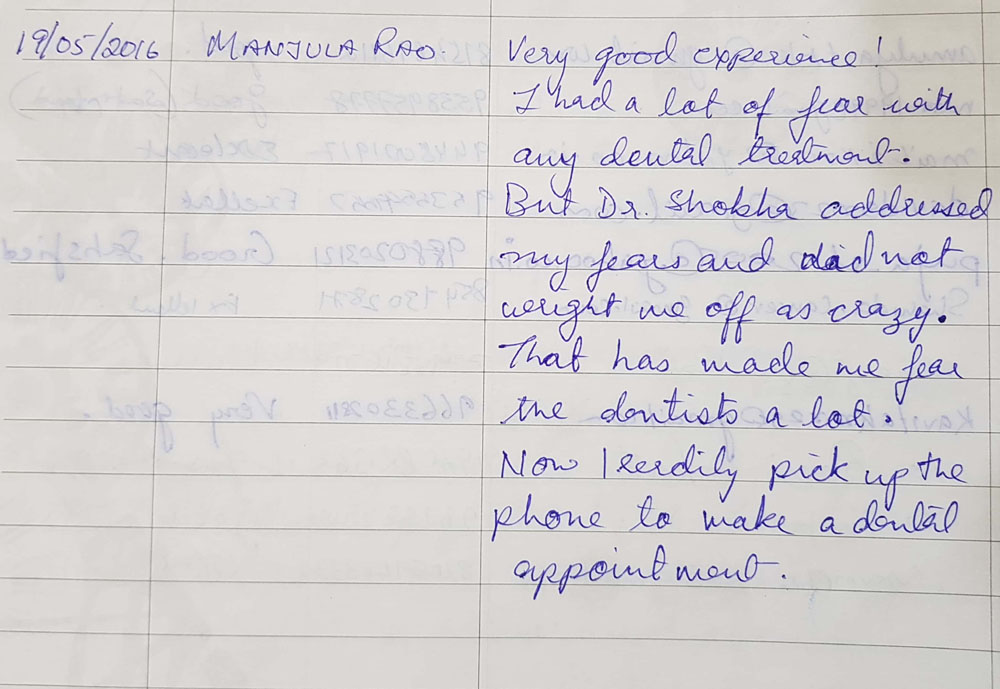 19/05/2016 MANJULA RAO. Very good experience!
I had a lot of fear with
any dental treatment.
But Dr. Shobha addressed
my fears and did not
weight me off as crazy.
That has made me fear
the dentists a lot.
Now I readily pick up the
phone to make a dental
appointment.